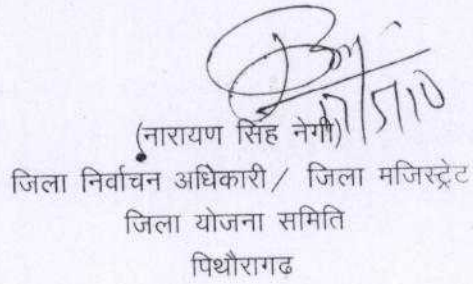 17/5/10
(नारायण सिंह नेगी)
जिला निर्वाचन अधिकारी / जिला मजिस्ट्रेट
जिला योजना समिति
पिथौरागढ